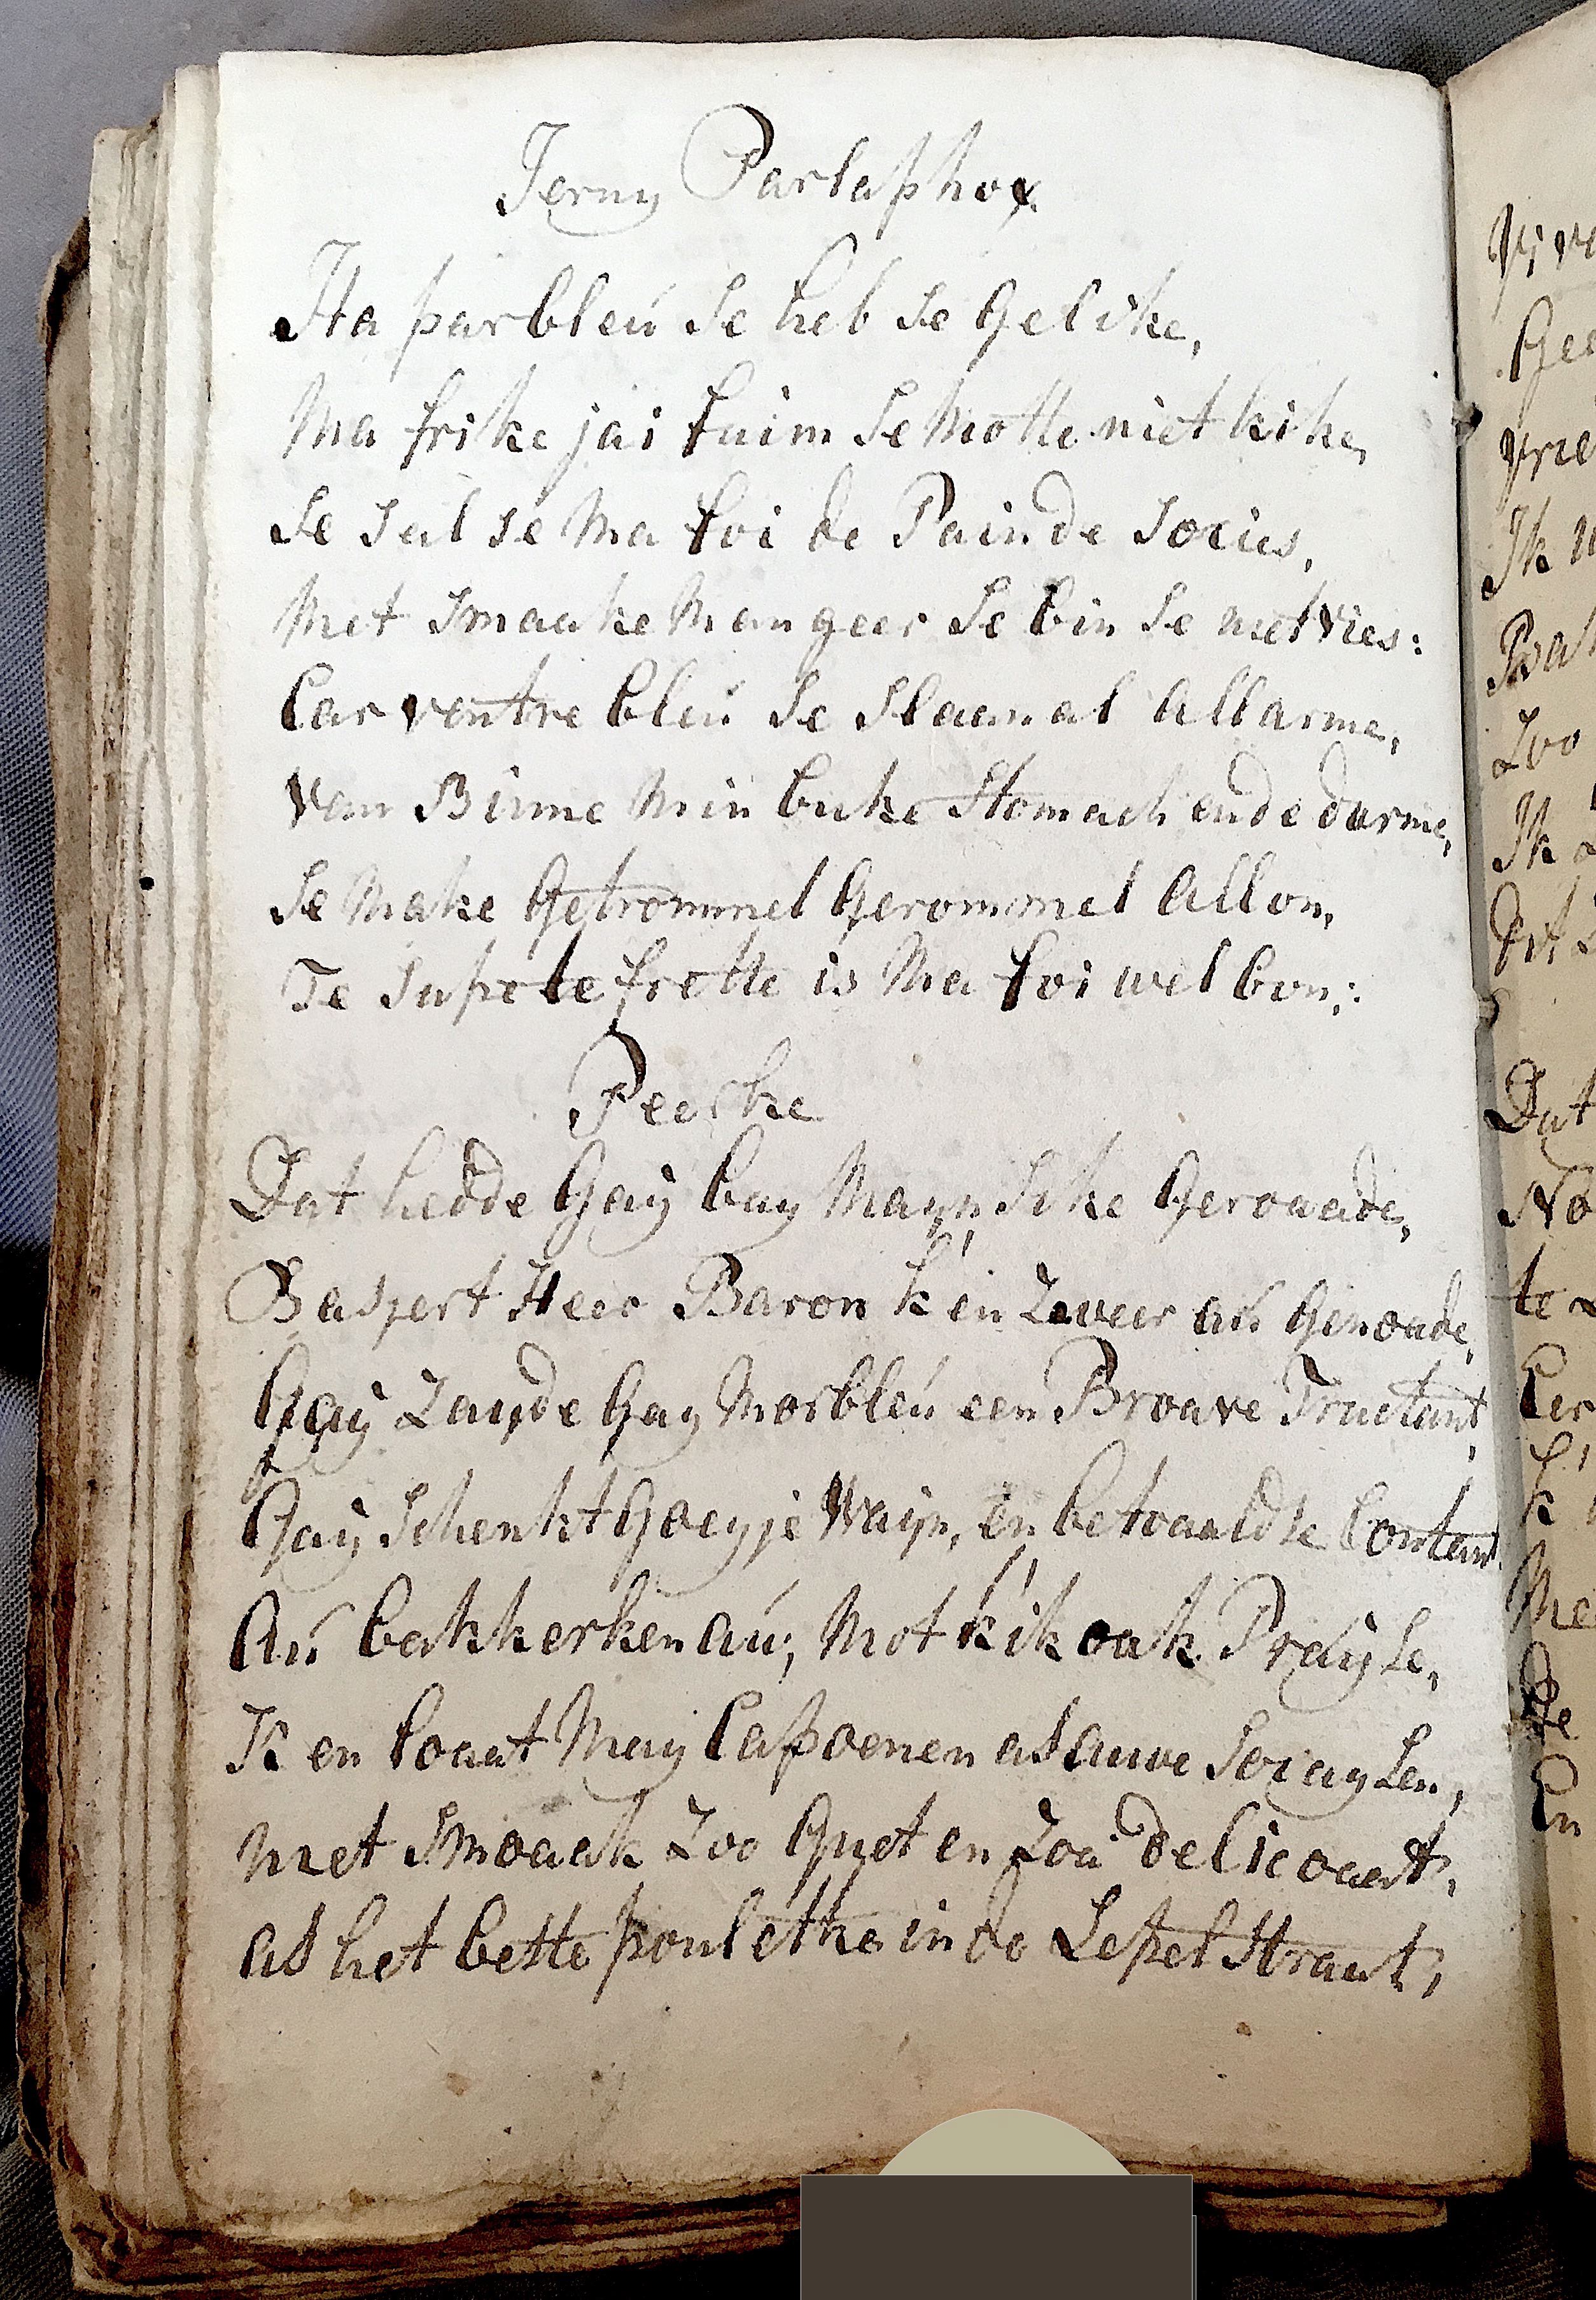 Jerny Parlaphox
Ha parbleú Se heb Se Gelike,
Ma frike jai faim Se Motte niet kike,
Se Sul se Ma foi de Pain de Socies,
Met Smaake Mangeer Se bin Se niet Vies:
Car ventre bleú Se Slaan al Allarme,
Van Binne Min buke Stomach ende darme,
Se Make Getrommel Gerommel Allon,
Te Supe te frette is Ma foi wel bon;:
Peerke
Dat hedde Gaÿ baÿ Maÿn Sike Geroaade,
Baszert Heer Baron k'en Zweer aú Genoade,
Gaÿ Zaÿde Gaÿ Morbleú een Broave Tractant,
Gaÿ Schenkt Goeyje Waÿn, en betoaaldt Contant
Aú bakkerken aú; Mot k'ik oak Praÿse,
K en loaat Maÿ Capoenen as auwe Socaÿsen,
met Smoaak Zoo Goet en Zoa delicoaat,
as het bette poulétke in de Lepel Straat,
Gee
Vrie
Ik
Zoo
Ik
Dat
No
te
En